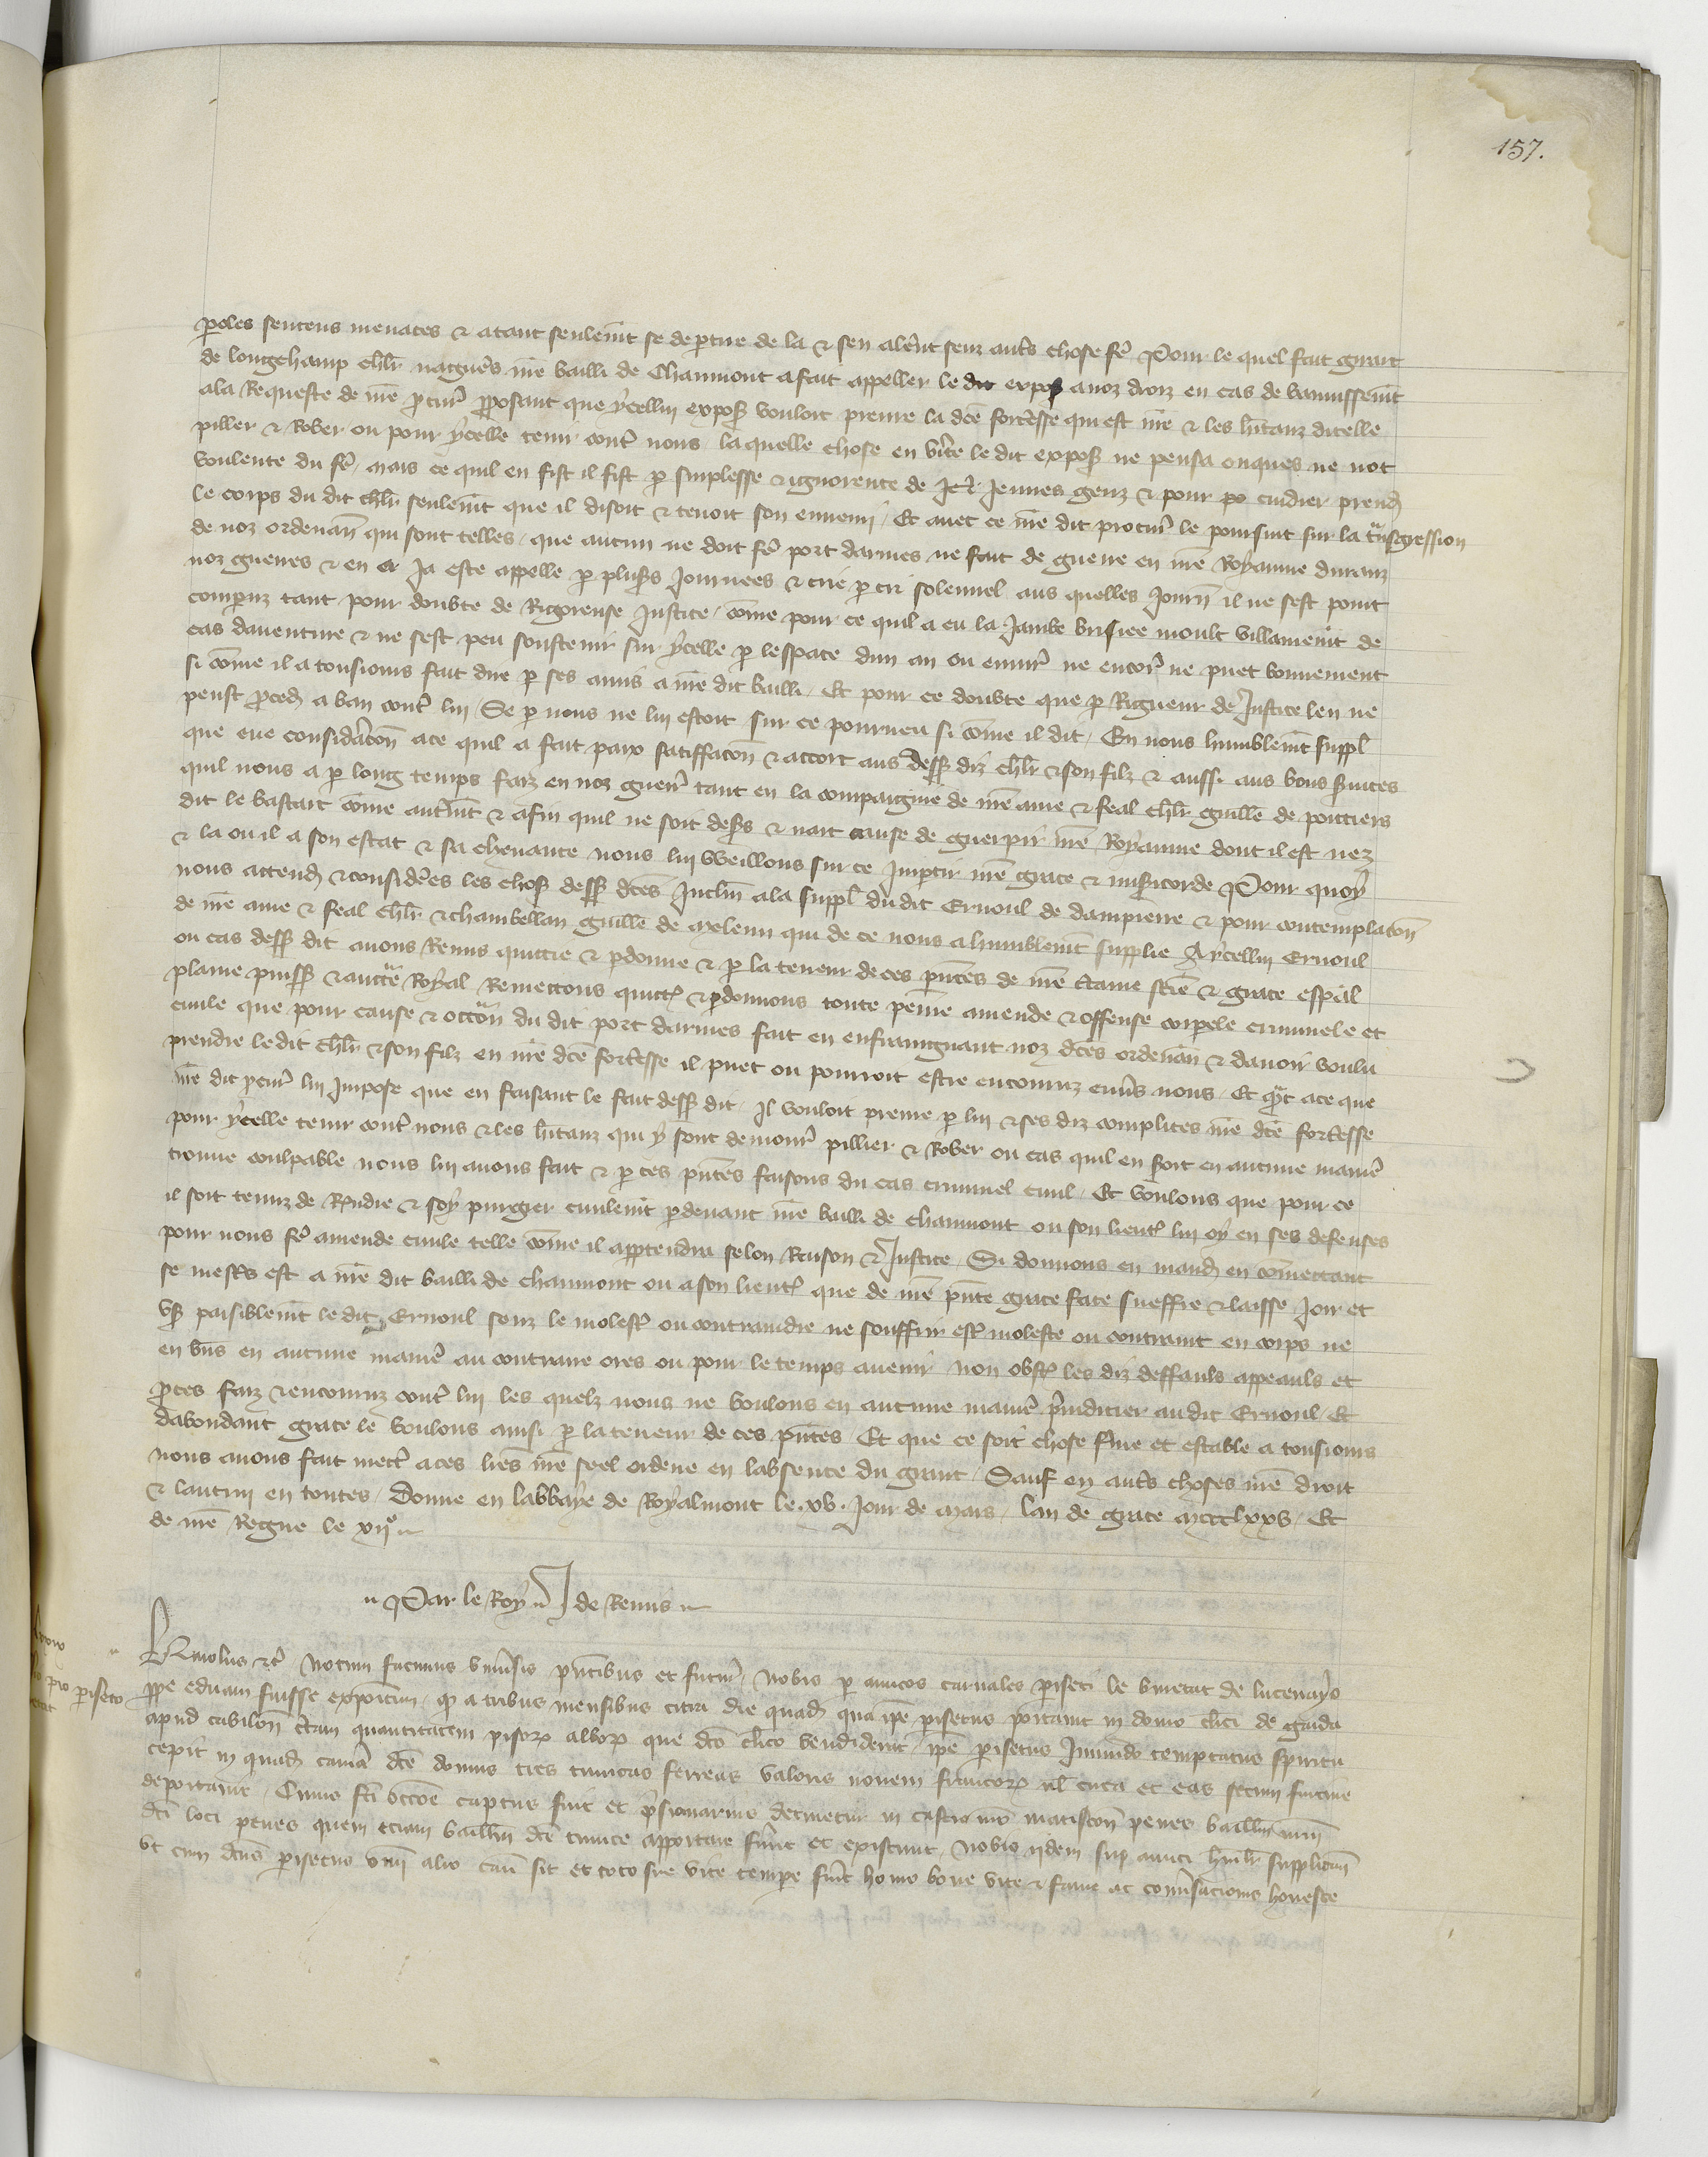 157.
poles senteus menaces & atant seulemt se deptire de la & sen alerent senz autre chose fe Pour le quel fait girart
de longchamp chlr nagueres nre bailli de Chaumont a fait appeller le dit expos a noz droiz en cas de bannissemt
ala Requeste de nre pcur pposant que ycellui expos vouloit prenre la dce fortesse qui est nre & les hitanz dicelle
piller & Rober ou pour ycelle tenir contre nous laquelle chose en vite le dit expos ne pensa onques ne not
voulente du fe, mais ce quil en fist il fist p simplesse & ignorence de Jeunes genz & pour po cuidier prend
le corps du dit chlr seulemt que il disoit & tenoit son ennemi, Et avec ce nre dit procur le poursuit sur la tnsgression
de noz ordenan qui sont telles, que aucun ne doit fe port darmes ne fait de guerre en nre Royaume duranz
noz guerres & en a Ja este appelle p plus Journees & crie p cri solennel aus quelles Journ il ne sest point
comparuz tant pour doubte de Rigoreuse Justice, come pour ce quil a eu la Jambe brisiee moult villainemt de
cas daventure & ne sest peu soustenir sur ycelle p lespace dun an ou envir ne encor ne puet bonnement
si come il a tousiours fait dire p ses amis a nre dit bailli, Et pour ce doubte que p Rigueur de Justice len ne
peust pced a ban contre lui, Se p nous ne lui estoit sur ce pourveu si come il dit, En nous humblemt suppl
que eue consideracon ace quil a fait paix satiffacon & accort aus dess diz chlr & son filz & aussi aus bons svices
quil nous a p long temps faiz en noz guerr tant en la compaignie de nre ame & feal chlr guille de poitiers
dit le bastart come autremt & afin quil ne soit des & nait cause de guerpir nre Royaume dont il est nez
& la ou il a son estat & sa chevance nous lui vveillons sur ce Impartir nre grace & misicorde Pour quoy
nous attend & consideres les chos dess dces Inclin ala suppl du dit Ernoul de dampierre & pour contemplacon
de nre ame & feal chlr & chambellan guille de meleun qui de ce nous a humblemt supplie A ycellui Ernoul
ou cas dess dit avons Remis quictie & pdonne & p la teneur de ces pntes de nre ctaine scie & grace espal
plaine puiss & aucte Royal Remettons quictons & pdonnons toute peine amende & offense corpele criminele et
civile que pour cause & occon du dit port darmes fait en enfraingnant noz dces ordenan & davoir voulu
prendre ledit chlr & son filz en nre dce fortesse il puet ou pourroit estre encouruz envers nous, Et qnt ace que
nre dit pcur lui Impose que en faisant le fait dess dit, Il vouloit prenre p lui & ses diz complices nre dce fortesse
pour ycelle tenir contre nous & les hitanz qui y sont demour pillier & Rober ou cas quil en soit en aucune manie
trouve coulpable nous lui avons fait & p ces pntes faisons du cas criminel civil, Et voulons que pour ce
il soit tenuz de Rndre & soy purgier civilemt pdevant nre bailli de chaumont ou son lieut lui oy en ses defenses
pour nous fe amende civile telle come il apptendra selon Raison & Justice, Si donnons en mand en comettant
se mestrs est a nre dit bailli de chaumont ou a son lieut que de nre pnte grace face sueffre & laisse Joir et
us paisiblemt ledit Ernoul senz le molest ou contraindre ne souffrir est moleste ou contraint en corps ne
en bns en aucune manie au contraire ores ou pour le temps avenir non obst les diz deffauls appeauls et
pces faiz & encouruz contre lui les quelz nous ne voulons en aucune manie pjudicier audit Ernoul, Et
dabondant grace le voulons ainsi p la teneur de ces pntes Et que ce soit chose ferme et estable a tousiours
nous avons fait mectre a ces lres nre seel ordene en labsence du grant, Sauf en autres choses nre droit
& lautrui en toutes, Donne en labbaye de Royalmont le .xv. Jour de mars, lan de grace mccclxxv, Et
de nre Regne le xiio
Par le Roy J de Remis
Karolus etc Notum facimus univsis pntibus et futur, Nobis p amicos carnales piseti le bncat de lucenayo
ppe eduam fuisse expositum, qd a tribus mensibus citra die quad qua ipe pisetus portavit in domo clici de gaida
apud cabilon ctam quantitatem pisor albor que dco clico vendiderit, ipe pisetus Inmundo temptatus spiritu
cepit in quad camera dce domus tres tunicas ferreas valoris novem francor vel circa et eas secum furtive
deportavit, Cuius fci occone captus fuit et prisionarius detinetur in castro nro matiscon penes baillivum nrm
dci loci penes quem eciam baillivum dce tunice apportate fuerunt et existunt, Nobis iidem sup amici hmilr supplicarunt
ut cum dcus pisetus ... alio casu sit et toto sue vite tempe fuit homo bone vite & fame ac conversacionis honeste
piseto